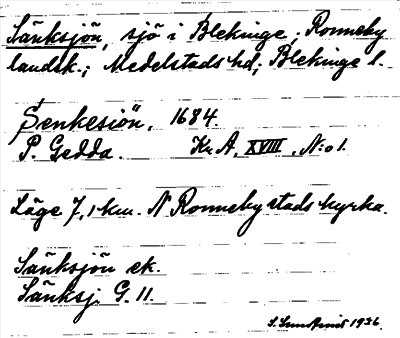 Sänksjön, sjö i Blekinge; Ronneby
landsk.; Medelstads hd; Blekinge l.
Senkesiön, 1684.
P. Gedda. Kr. A. XVIII, N:o 1.
Läge 7,1 km. N Ronneby stads kyrka.
Sänksjön ek.
Sänksj. G. 11.
S. Sundqvist 1936.